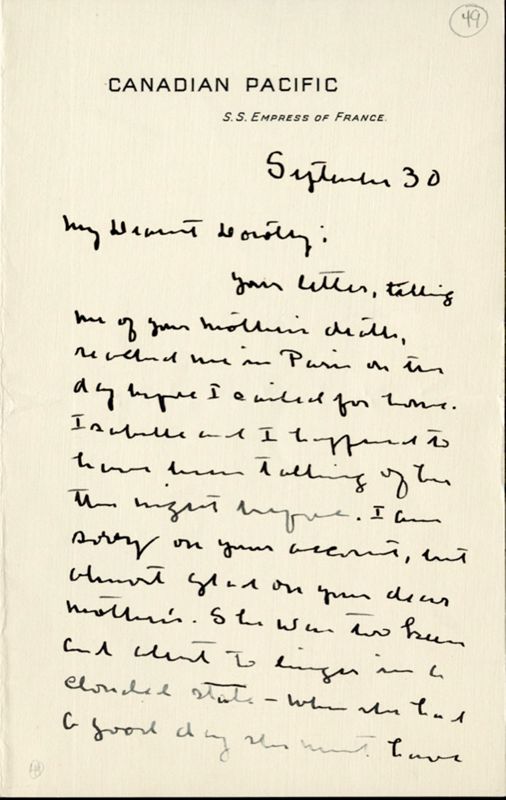 49
CANADIAN PACIFIC
S.S. EMPRESS OF FRANCE.
September 30
My Dearest Dorothy:
Your letter, telling
me of your mother's death,
reached me in Paris on the
day before I sailed for home.
Isabelle and I happened to
have been talking of her
the night before. I am
sorry on your account, but
almost glad on your dear
mother's. She was too keen
and alert to linger in a
clouded state – when she had
a good day she must have